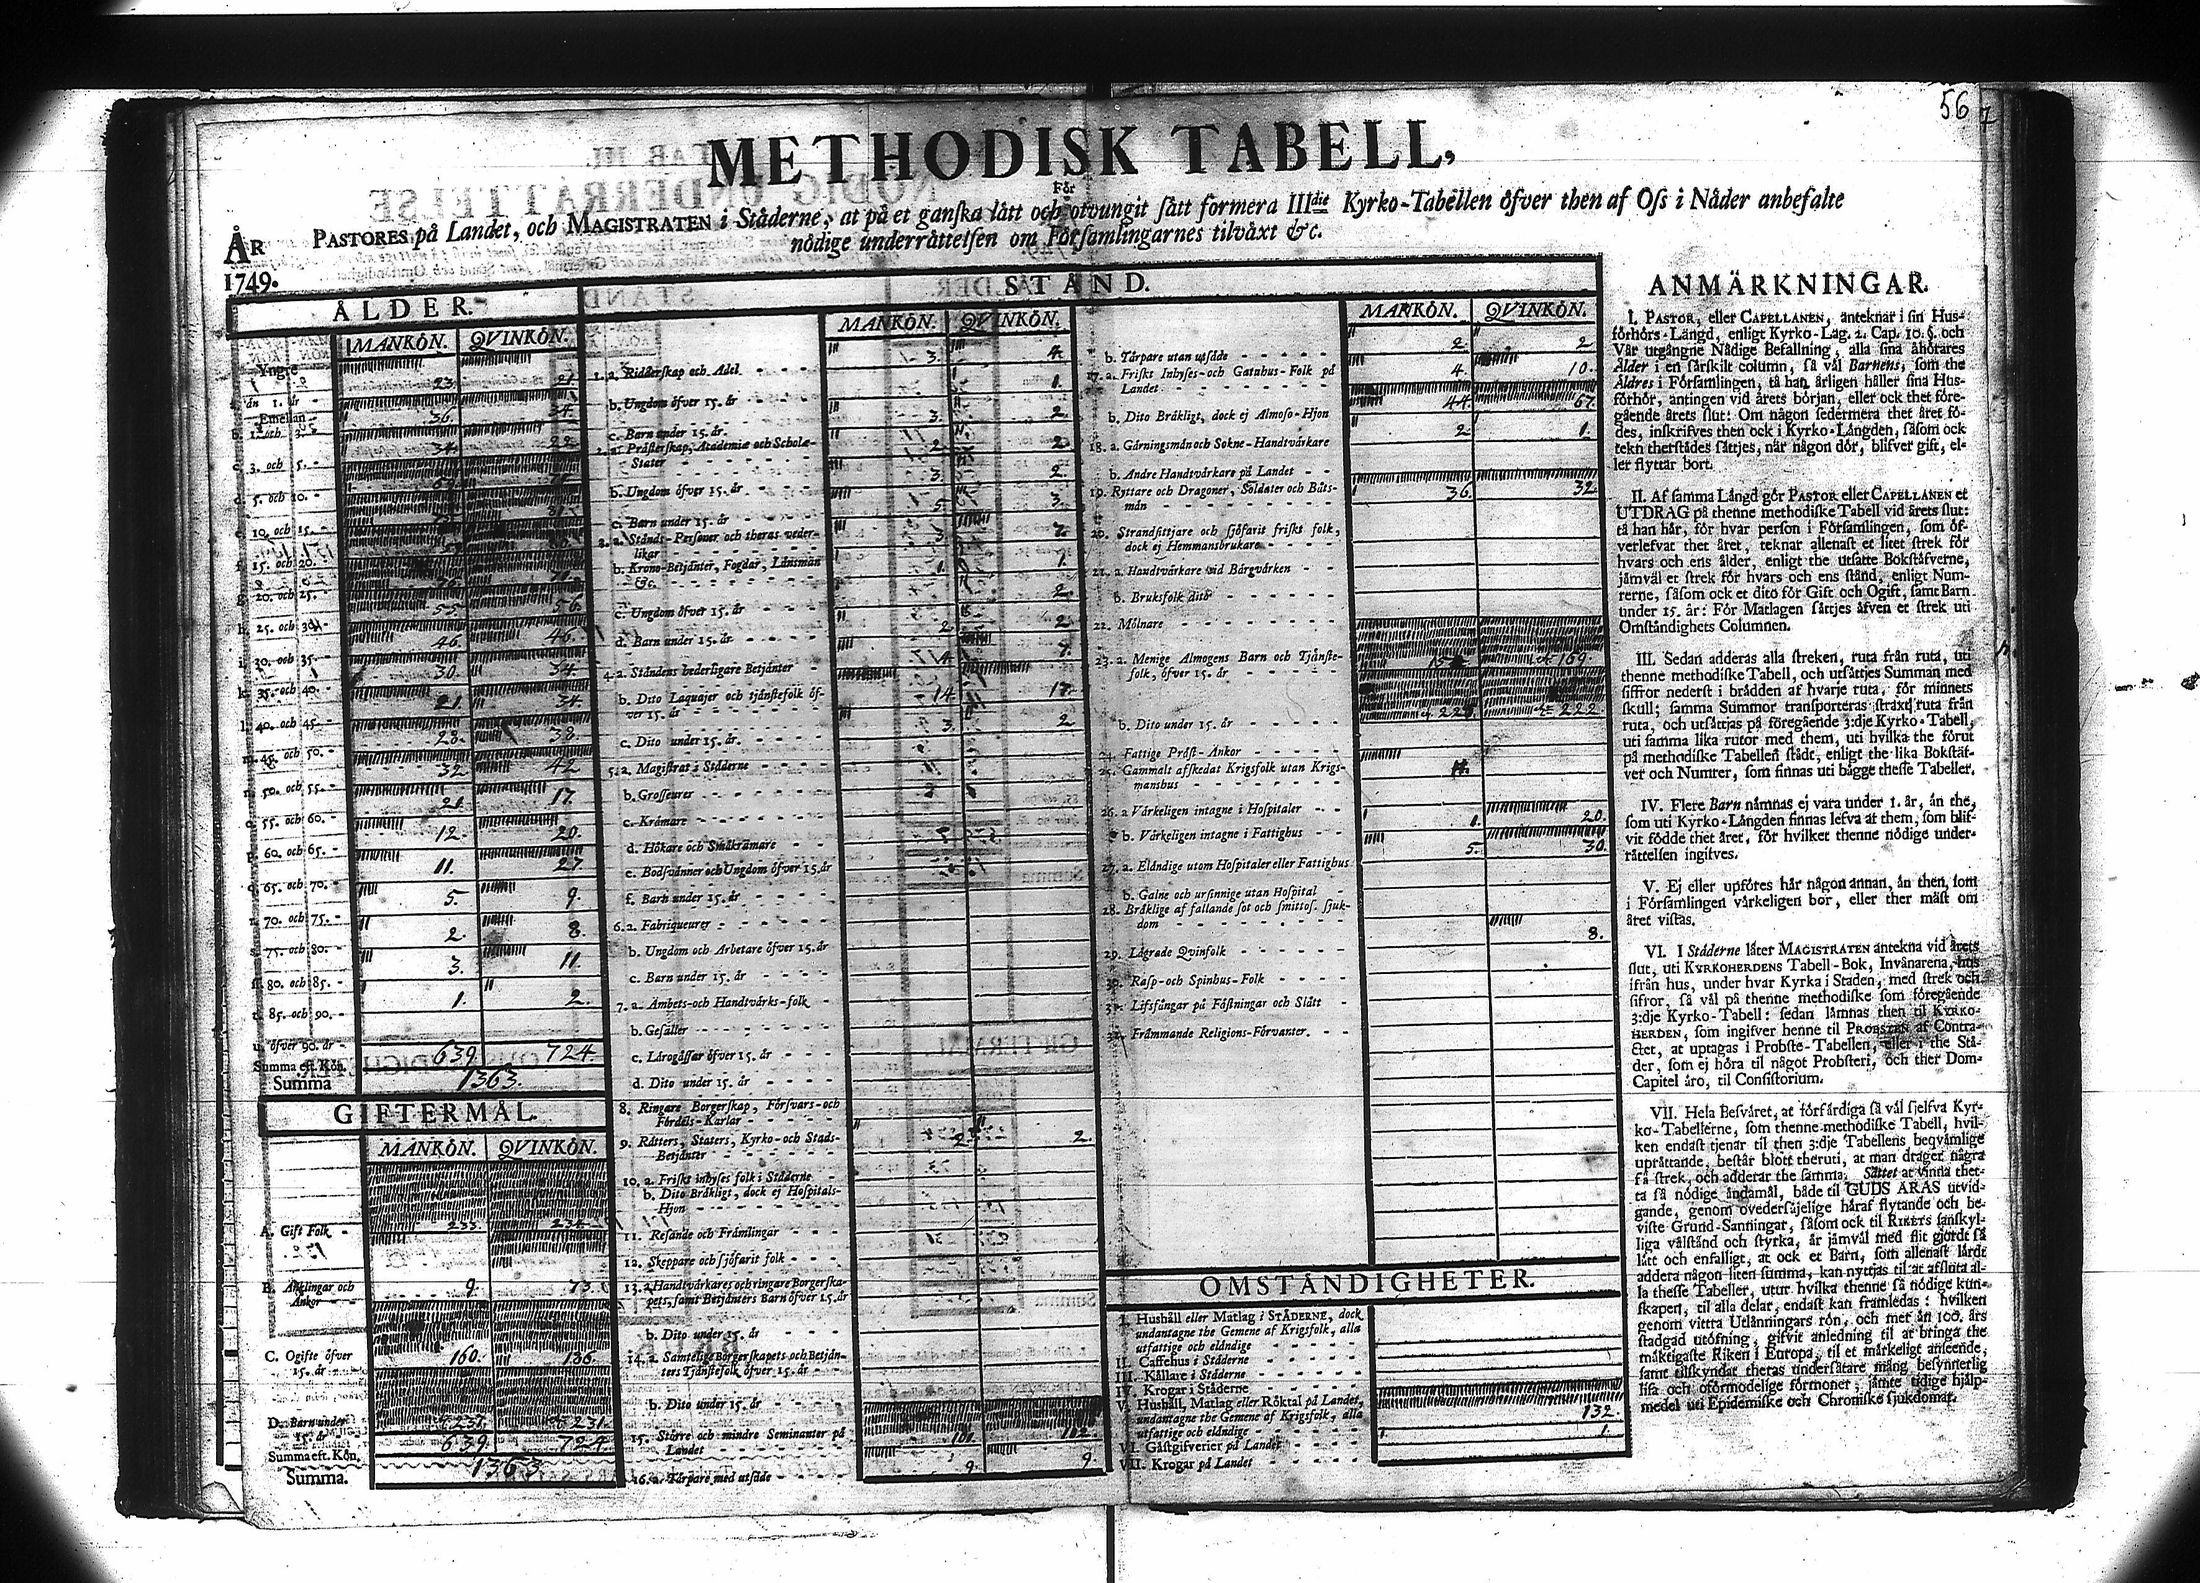 56
METHODISK TABELL,
För
PASTORES på Landet, och MAGISTRATEN i Ståderne, at på et ganska lått och otvungit sått formera IIIdie Kyrko-Tabellen öfver then af Oss i Nåder anbefalte
nödige underråttelsen om Församlingarnes tilvåxt &c.
ÅR
1749.
ÅLDER.
MANKÖN. QVINKÖN.
Yngre
än 1. år - 23. 21.
Emellan
b. 1. och 3. 36. 34.
c. 3. och 5. 34. 22.
d. 5. och 10.
e. 10. och 15.
f. 15. och 20.
g. 20. och 25. 55. 56.
h. 25. och 30. 46. 46.
i. 30. och 35. 30. 34.
k. 35. och 40. 21. 34.
l. 40. och 45. 28. 38.
m. 45. och 50. 32. 42
n. 50. och 55. 21. 17.
o. 55. och 60. 12. 20.
p. 60. och 65. 11. 27.
q. 65. och 70. 5. 9.
r. 70. och 75. 2. 8.
s. 75. och 80. 3. 11.
ſ. 80. och 85. 1. 2.
t. 85. och 90.
u. öfver 90. år
Summa eft. Kön. 639. 724.
Summa 1363.
GIFTERMÅL.
MANKÖN. QVINKÖN.
A. Gift Folk 233. 234.
B. Änklingar och
Änkor 9. 73.
C. Ogifte öfver
15. år 160. 136.
D. Barn under
15. år 231. 231.
Summa eft. Kön. 639. 724.
Summa. 1363
STÅND.
MANKÖN. QVINKÖN.
1. a. Ridderskap och Adel 3. 4.
b. Ungdom öfver 15. år 1.
c. Barn under 15. år. 3. 2.
2. a. Pråsterskap, Academiæ och Scholæ-
Stater 2. 2.
b. Ungdom öfver 15. år 3. 2.
c. Barn under 15. år 5. 3.
3. a. Stånds-Personer och theras veder-
likar
b. Krono-Betjånter, Fogdar, Lånsmån
&c. 1. 1.
c. Ungdom öfver 15. år 2.
d. Barn under 15. år 2. 2.
4. a. Ståndens hederligare Betjånter
b. Dito Laquajer och tjånstefolk öf-
ver 15. år 14. 17.
c. Dito under 15. år. 3. 2.
5. a. Magistrat i Ståderne
b. Grosseurer
c. Kråmare
d. Hökare och Småkråmare
e. Bodsvånner och Ungdom öfver 15. år
f. Barn under 15. år
6. a. Fabriqueurer
b. Ungdom och Arbetare öfver 15. år
c. Barn under 15. år
7. a. Åmbets-och Handtvårks-folk
b. Gesåller
c. Lårogåssar öfver 15. år
d. Dito under 15. år
8. Ringare Borgerskap, Försvars-och
Fördels-Karlar
9. Råtters, Staters, Kyrko-och Stads-
Betjånter 2. 2.
10. a. Friskt inhyses folk i Ståderne
b. Dito Bråkligt, dock ej Hospitals-
Hjon
11. Resande och Fråmlingar
12. Skeppare och sjöfarit folk
13. a. Handtvårkares och ringare Borgerska-
pets, samt Betjånters Barn öfver 15. år
b. Dito under 15. år
14. a. Samtelige Borgerskapets och Betjån-
ters Tjånstefolk öfver 15. år
b. Dito under 15. år
15. Större och mindre Seminanter på
Landet 101. 102.
16. a. Tårpare med utsåde 9. 9.
MANKÖN. QVINKÖN.
b. Tårpare utan utsåde 2. 2
17. a. Friskt Inhyses-och Gatuhus-Folk på
Landet 4. 10.
b. Dito Bråkligt, dock ej Almoso-Hjon 44. 67.
18. a. Gårningsmån och Sokne-Handtvårkare 2 1.
b. Andre Handtvårkare på Landet
19. Ryttare och Dragoner, Soldater och Båts-
mån 36. 32.
20. Strandsittjare och sjöfarit friskt folk,
dock ej Hemmansbrukare
21. a. Handtvårkare vid Bårgvårken
b. Bruksfolk dito
22. Mölnare
23. a. Menige Almogens Barn och Tjånste-
folk, öfver 15. år 169.
b. Dito under 15. år 222.
24. Fattige Pråst-Ånkor
25. Gammalt afskedat Krigsfolk utan Krigs-
manshus
26. a. Vårkeligen intagne i Hospitaler 1. 20.
b. Vårkeligen intagne i Fattighus 5. 30.
27. a. Elåndige utom Hospitaler eller Fattighus
b. Galne och ursinnige utan Hospital
28. Bråklige af fallande sot och smittos. sjuk-
dom 8.
29. Lågrade Qvinfolk
30. Rasp-och Spinhus-Folk
31. Lifsfångar på Fåstningar och Slått
32. Fråmmande Religions-Förvanter.
OMSTÅNDIGHETER.
I. Hushåll eller Matlag i STÅDERNE, dock
undantagne the Gemene af Krigsfolk, alla
utfattige och elåndige
II. Caffehus i Ståderne
III. Kållare i Ståderne
IV. Krogar i Ståderne
V. Hushåll, Matlag eller Röktal på Landet,
undantagne the Gemene af Krigsfolk, alla
utfattige och elåndige 132.
VI. Gåstgifverier på Landet 1.
VII. Krogar på Landet
ANMÄRKNINGAR.
I. PASTOR, eller CAPELLANEN, anteknar i sin Hus-
förhörs-Långd, enligt Kyrko-Lag. 2. Cap. 10. §. och
Vår utgångne Nådige Befallning, alla sina åhörares
Ålder i en sårskilt column, så vål Barnens, som the
Åldres i Församlingen, tå han årligen håller sina Hus-
förhör, antingen vid årets början, eller ock thet före-
gående årets slut: Om någon sedermera thet året fö-
des, inskrifves then ock i Kyrko-Långden, såsom ock
tekn therstådes såttjes, når någon dör, blifver gift, el-
ler flyttar bort.
II. Af samma Långd gör PASTOR eller CAPELLANEN et
UTDRAG på thenne methodiske Tabell vid årets slut:
tå han hår, för hvar person i Församlingen, som öf-
verlefvat thet året, teknar allenast et litet strek för
hvars och ens ålder, enligt the utsatte Bokståfverne,
jåmvål et strek för hvars och ens stånd, enligt Num-
rerne, såsom ock et dito för Gift och Ogift, samt Barn
under 15. år: För Matlagen såttjes åfven et strek uti
Omståndighets Columnen.
III. Sedan adderas alla streken, ruta från ruta, uti
thenne methodiske Tabell, och utsåttjes Summan med
siffror nederst i brådden af hvarje ruta, för minnets
skull; samma Summor transporteras straxt ruta från
ruta, och utsåttjas på föregående 3:dje Kyrko-Tabell,
uti samma lika rutor med them, uti hvilka the förut
på methodiske Tabellen stådt, enligt the lika Bokståf-
ver och Numrer, som finnas uti bågge thesse Tabeller.
IV. Flere Barn nåmnas ej vara under 1. år, ån the,
som uti Kyrko-Långden finnas lefva af them, som blif-
vit födde thet året, för hvilket thenne nödige under-
råttelsen ingifves.
V. Ej eller upföres hår någon annan, ån then, som
i Församlingen vårkeligen bor, eller ther måst om
året vistas.
VI. I Ståderne låter MAGISTRATEN antekna vid årets
slut, uti KYRKOHERDENS Tabell-Bok, Invånarena, hus
ifrån hus, under hvar Kyrka i Staden, med strek och
sifror, så vål på thenne methodiske som föregående
3:dje Kyrko-Tabell: sedan låmnas then til KYRKO-
HERDEN, som ingifver henne til PROBSTEN af Contra-
ctet, at uptagas i Probste-Tabellen, eller i the Stå-
der, som ej höra til något Probsteri, och ther Dom-
Capitel åro, til Consistorium.
VII. Hela Besvåret, at förfårdiga så vål sjelfva Kyr-
ko-Tabellerne, som thenne methodiske Tabell, hvil-
ken endast tjenar til then 3:dje Tabellens beqvåmlige
upråttande, består blott theruti, at man drager några
få strek, och adderar the samma: Såttet at vinna thet-
ta så nödige åndamål, både til GUDS ÅRAS utvid-
gande, genom ovedersåjelige håraf flytande och be-
viste Grund-Sanningar, såsom ock til RIKETS sanskyl-
liga vålstånd och styrka, år jåmvål med flit gjordt så
lått och enfalligt, at ock et Barn, som allenast lårdt
addera någon liten summa, kan nyttjas til at afsluta al-
la thesse Tabeller, utur hvilka thenne så nödige kun-
skapen, til alla delar, endast kan framledas: hvilken
genom vittra Utlånningars rön, och mer ån 100. års
stadgad utöfning, gifvit anledning til at bringa the
måktigaste Riken i Europa, til et mårkeligt anseende,
samt tilskyndat theras undersåtare mång besynnerlig
lisa och oförmodelige förmoner, jåmte tidige hjålp-
medel uti Epidemiske och Chroniske sjukdomar.